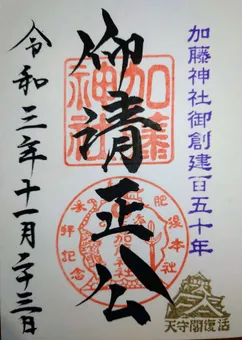 加藤神社御創建百五十年
仰清正公
加藤
神社
肥後本社
参拝記念
令和三年十一月二十三日
天守閣復活